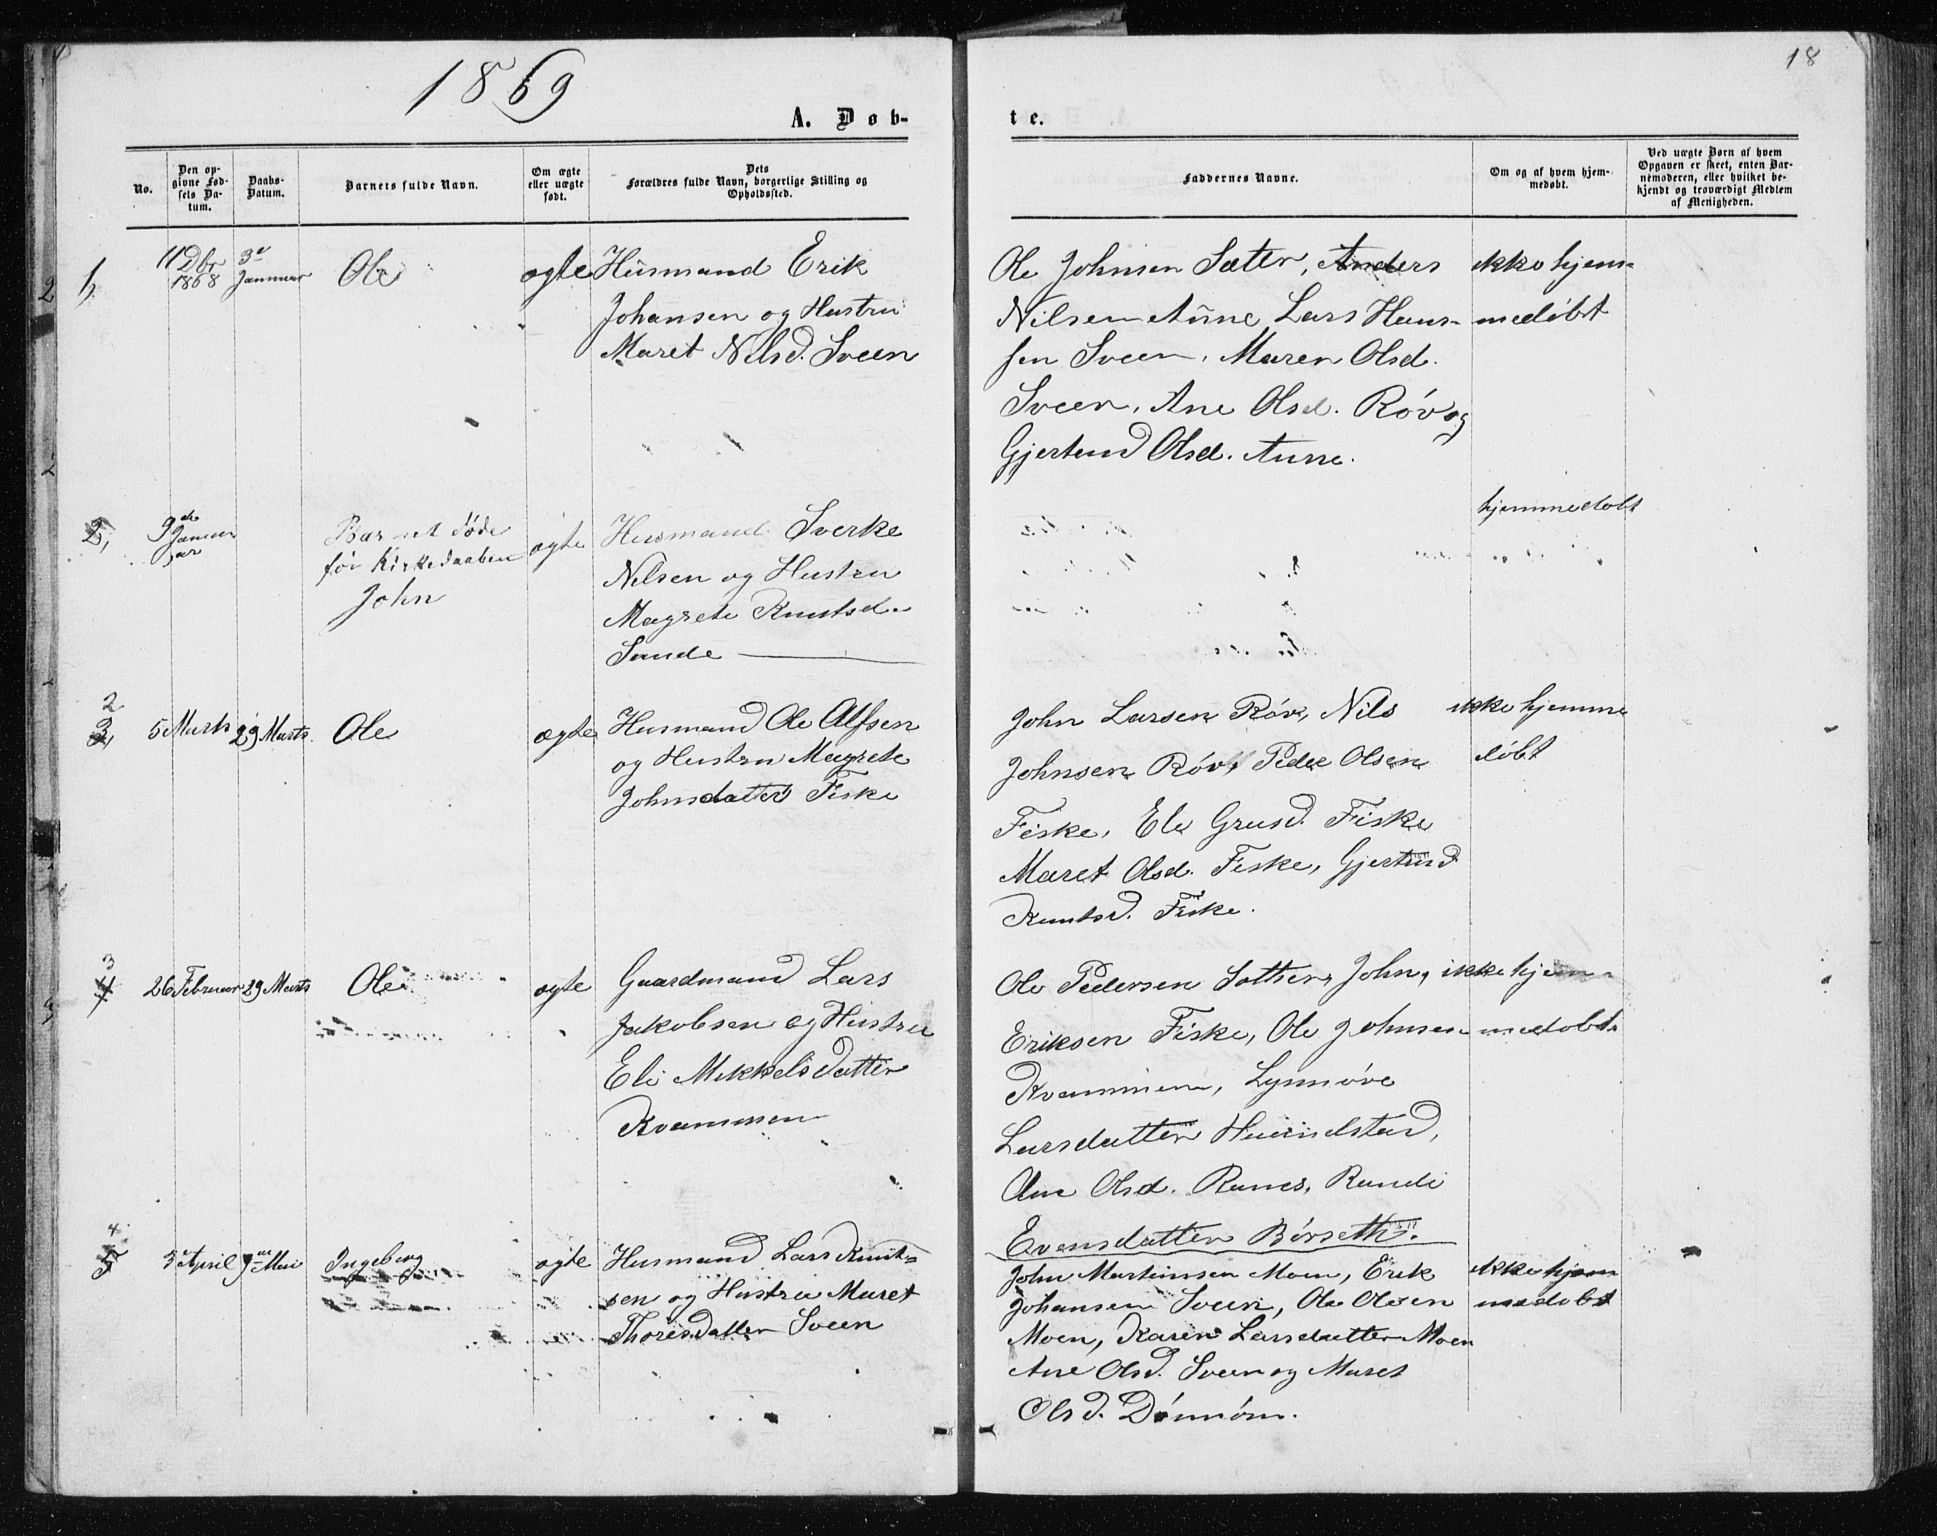 18
1869
A. Døb-
te.
No.
Den op-
givne Fød-
sels Da-
tum.
Daabs-
Datum.
Barnets fulde Navn.
Om ægte
eller uægte
født.
Dets
Forældres fulde Navn, borgerlige Stilling og
Opholdssted.
Faddernes Navne.
Om og af hvem hjem-
medøbt.
Ved uægte Børn af hvem
Opgaven er skeet, enten Bar-
nemoderen, eller hvilket be-
kjendt og troværdigt Medlem
af Menigheden.
1,
11 Dbr
1868
3e
Januar
Ole
ægte
Husmand Erik
Johansen og Hustru
Maret Nilsd. Sveen
Ole Johnsen Sæter, Anders
Nilsen Aune Lars Hans-
sen Sveen, Maren Olsd.
Sveen, Ane Olsd. Røv og
Gjertrud Olsd. Aune.
ikke hjem-
medøbt
2,
9de
Janu
ar
Barnet døde
før Kirkedaaben
John
ægte
Husmand Sverke
Nilsen og Hustru
Magrete Knutsd.
Sande
hjemmedøbt
2
3,
5 Marts
29 Marts
Ole
ægte
Husmand Ole Alfsen
og Hustru Magrete
Johnsdatter Fiske
John Larsen Røv, Nils
Johnsen Røv, Peder Olsen
Fiske, Eli Grusd. Fiske
Maret Olsd. Fiske, Gjertrud
Knutsd. Fiske.
ikke hjemme
døbt
3
4
26 Februar
29 Marts
Ole
ægte
Gaardmand Lars
Jakobsen og Hustru
Eli Mikkelsdatter
Kvammen
Ole Pedersen Sæther, John
Eriksen Fiske, Ole Johnsen
Kvammen,
Larsdatter
Ane Olsd. Ranes, Randi
Evensdatter Børseth.
ikke hjem-
medøbt
4
5
3e April
9de Mai
Ingeborg
ægte
Husmand Lars Knut-
sen og Hustru Maret
Thoresdatter Sveen
John Martinsen Moen, Erik
Johansen Sveen, Ole Olsen
Moen, Karen Larsdatter Moen
Ane Olsd. Sveen og Maret
Olsd. Dønnøm.
ikke hjem
medøbt